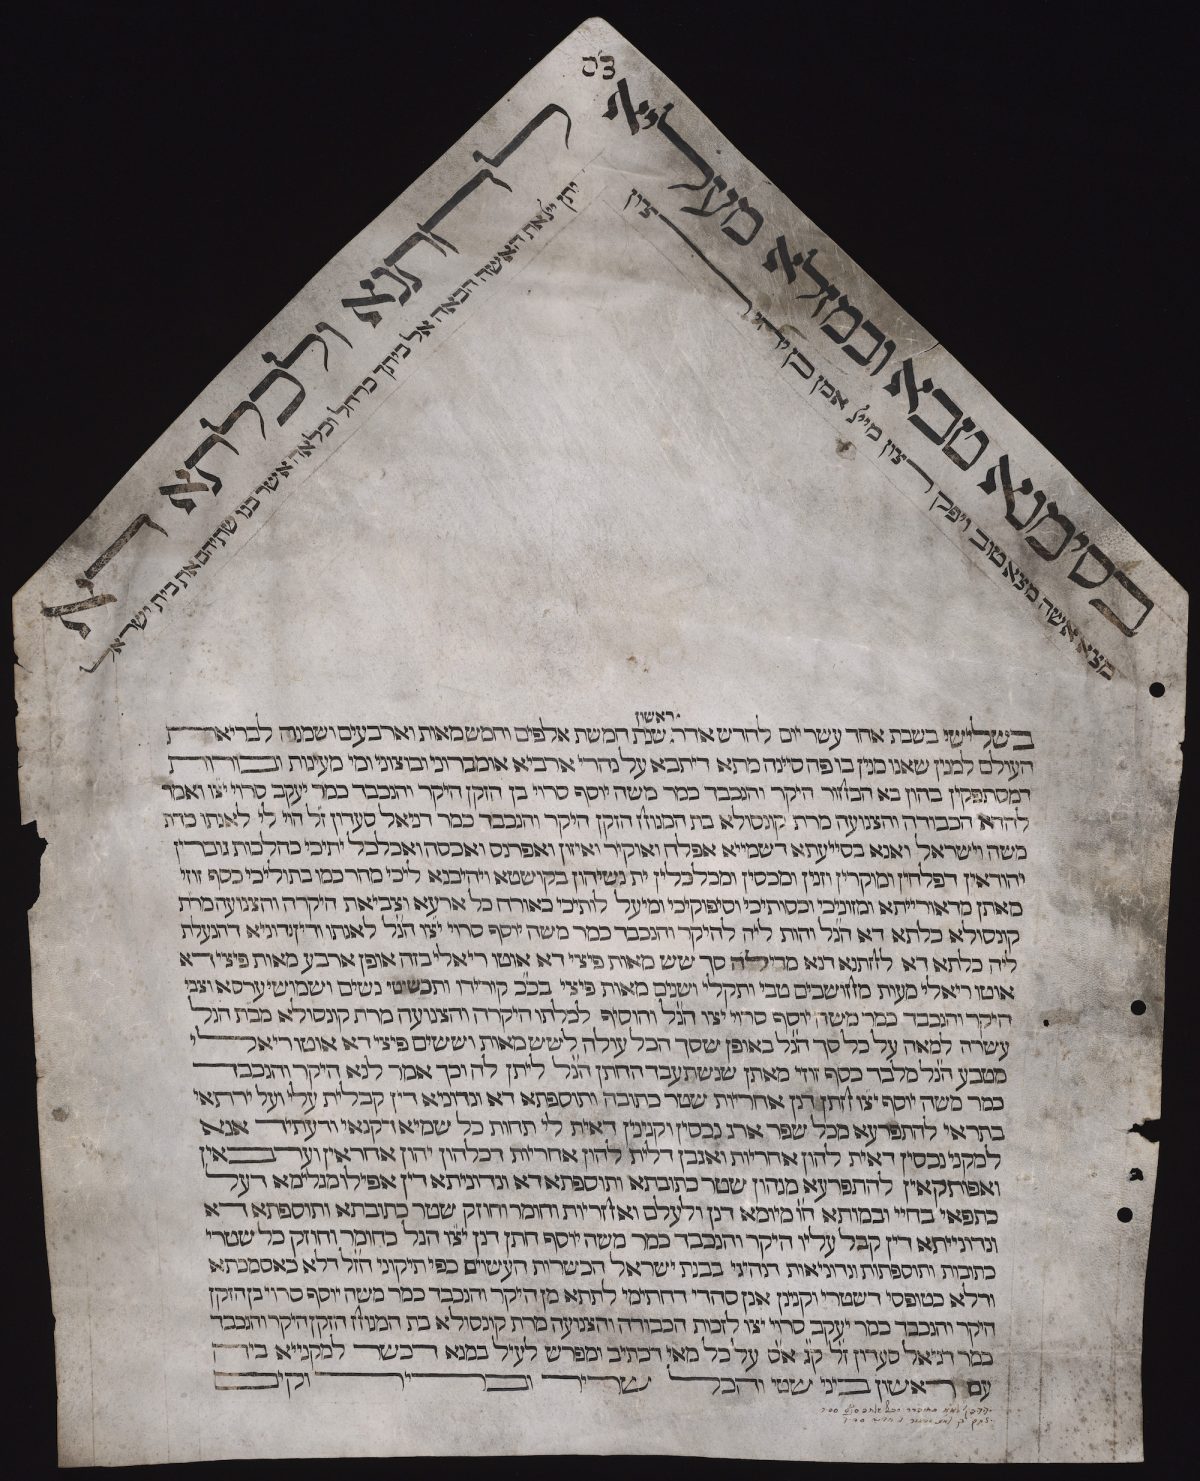 ס״ם
בסימנא טבא ובמזלא מעליא
לחתנא ולכלתא דא
מצא אשה מצא טוב ויפק רצון מיי׳ אמן כן יהי רצון
יתן יי׳ את האשה הבאה אל ביתך כרחל וכלאה אשר בנו שתיהם את בית ישראל
ראשון
בשלישי בשבת אחד עשר יום לחדש אדר שנת חמשת אלפים וחמש מאות וארבעים ושמנה לבריאת
העולם למנין שאנו מנין בו פה סינה מתא דיתבא על נהרי ארביא אומברוני ובוצוני ומי מעינות ובורות
דמסתפקין בהון בא הבחור היקר והנכבד כמר משה יוסף סרוי בן הזקן היקר והנכבד כמר יעקב סרוי יצו ואמר
להדא הכבודה והצנועה מרת קונסולא בת המנוח הזקן היקר והנכבד כמר דניאל סעדון ז״ל הוי לי לאנתו כדת
משה וישראל ואנא בסייעתא דשמייא אפלח ואוקיר ואיזון ואפרנס ואכסה ואכלכל יתיכי כהלכות גוברין
יהודאין דפלחין ומוקרין וזנין ומכסין ומכלכלין ית נשיהון בקושטא ויהיבנא ליכי מהר כמו בתוליכי כסף זוזי
מאתן מדאורייתא ומזוניכי וכסותיכי וסיפוקיכי ומיעל לותיכי כאורח כל ארעא וצביאת היקרה והצנועה מרת
קונסולא כלתא דא הנ״ל והות ליה להיקר והנכבד כמר משה יוסף סרוי יצו הנ״ל לאנתו ודין נדוניא דהנעלת
ליה כלתא דא לחתנא דנא סך שש מאות פיצי דא אוטו ריאלי בזה אופן ארבע מאות פיצי דא
אוטו ריאלי מעות מזומנים טבי ותקלי ושנים מאות פיצי בכ״ב קורידו ותכשיטי נשים ושמושי ערסא וצבי
היקר והנכבד כמר משה יוסף סרוי יצו הנ״ל והוסיף לכלתו היקרה והצנועה מרת קונסולא מבת הנ״ל
עשרה למאה על כל סך הנ״ל באופן שסך הכל עולה לשש מאות וששים פיצי דא אוטו ריאלי
מטבע הנ״ל מלבד כסף זוזי מאתן שנשתעבד החתן הנ״ל ליתן לה וכך אמר לנא היקר והנכבד
כמר משה יוסף יצו חתן דנן אחריות שטר כתובה ותוספתא דא ונדוניא דין קבלית עלי ועל ירתאי
בתראי להתפרעא מכל שפר ארג נכסין וקנינין דאית לי תחות כל שמיא דקנאי ודעתיד אנא
למקני נכסין דאית להון אחריות ואגבן דלית להון אחריות דכלהון יהון אחראין וערבאין
ואפותקאין להתפרעא מנהון שטר כתובתא ותוספתא דא ונדוניתא דין אפילו מגלימא דעל
כתפאי בחיי ובמותא מיומא דנן ולעלם ואחריות וחומר וחוזק שטר כתובתא ותוספתא דא
ונדונייתא דין קבל עליו היקר והנכבד כמר משה יוסף חתן דנן יצו הנ״ל כחומר וחוזק כל שטרי
כתובות ותוספתות ונדוניאות דנהיגי בבנת ישראל הכשרות העשוים כפי תיקוני חז״ל דלא כאסמכתא
ודלא כטופסי דשטרי וקנינן אנן סהדי דחתימי לתתא מן היקר והנכבד כמר משה יוסף סרוי בן הזקן
היקר והנכבד כמר יעקב סרוי יצו לזכות הכבודה והצנועה מרת קונסולא בת המנוח הזקן היקר והנכבד
כמר דניאל סעדון ז״ל ק״ג א״ס על כל מאי דכתיב ומפרש לעיל במנא דכשר למקנייא ביה דין
עם ראשון ביני שטי והכל שריר ובריר וקים